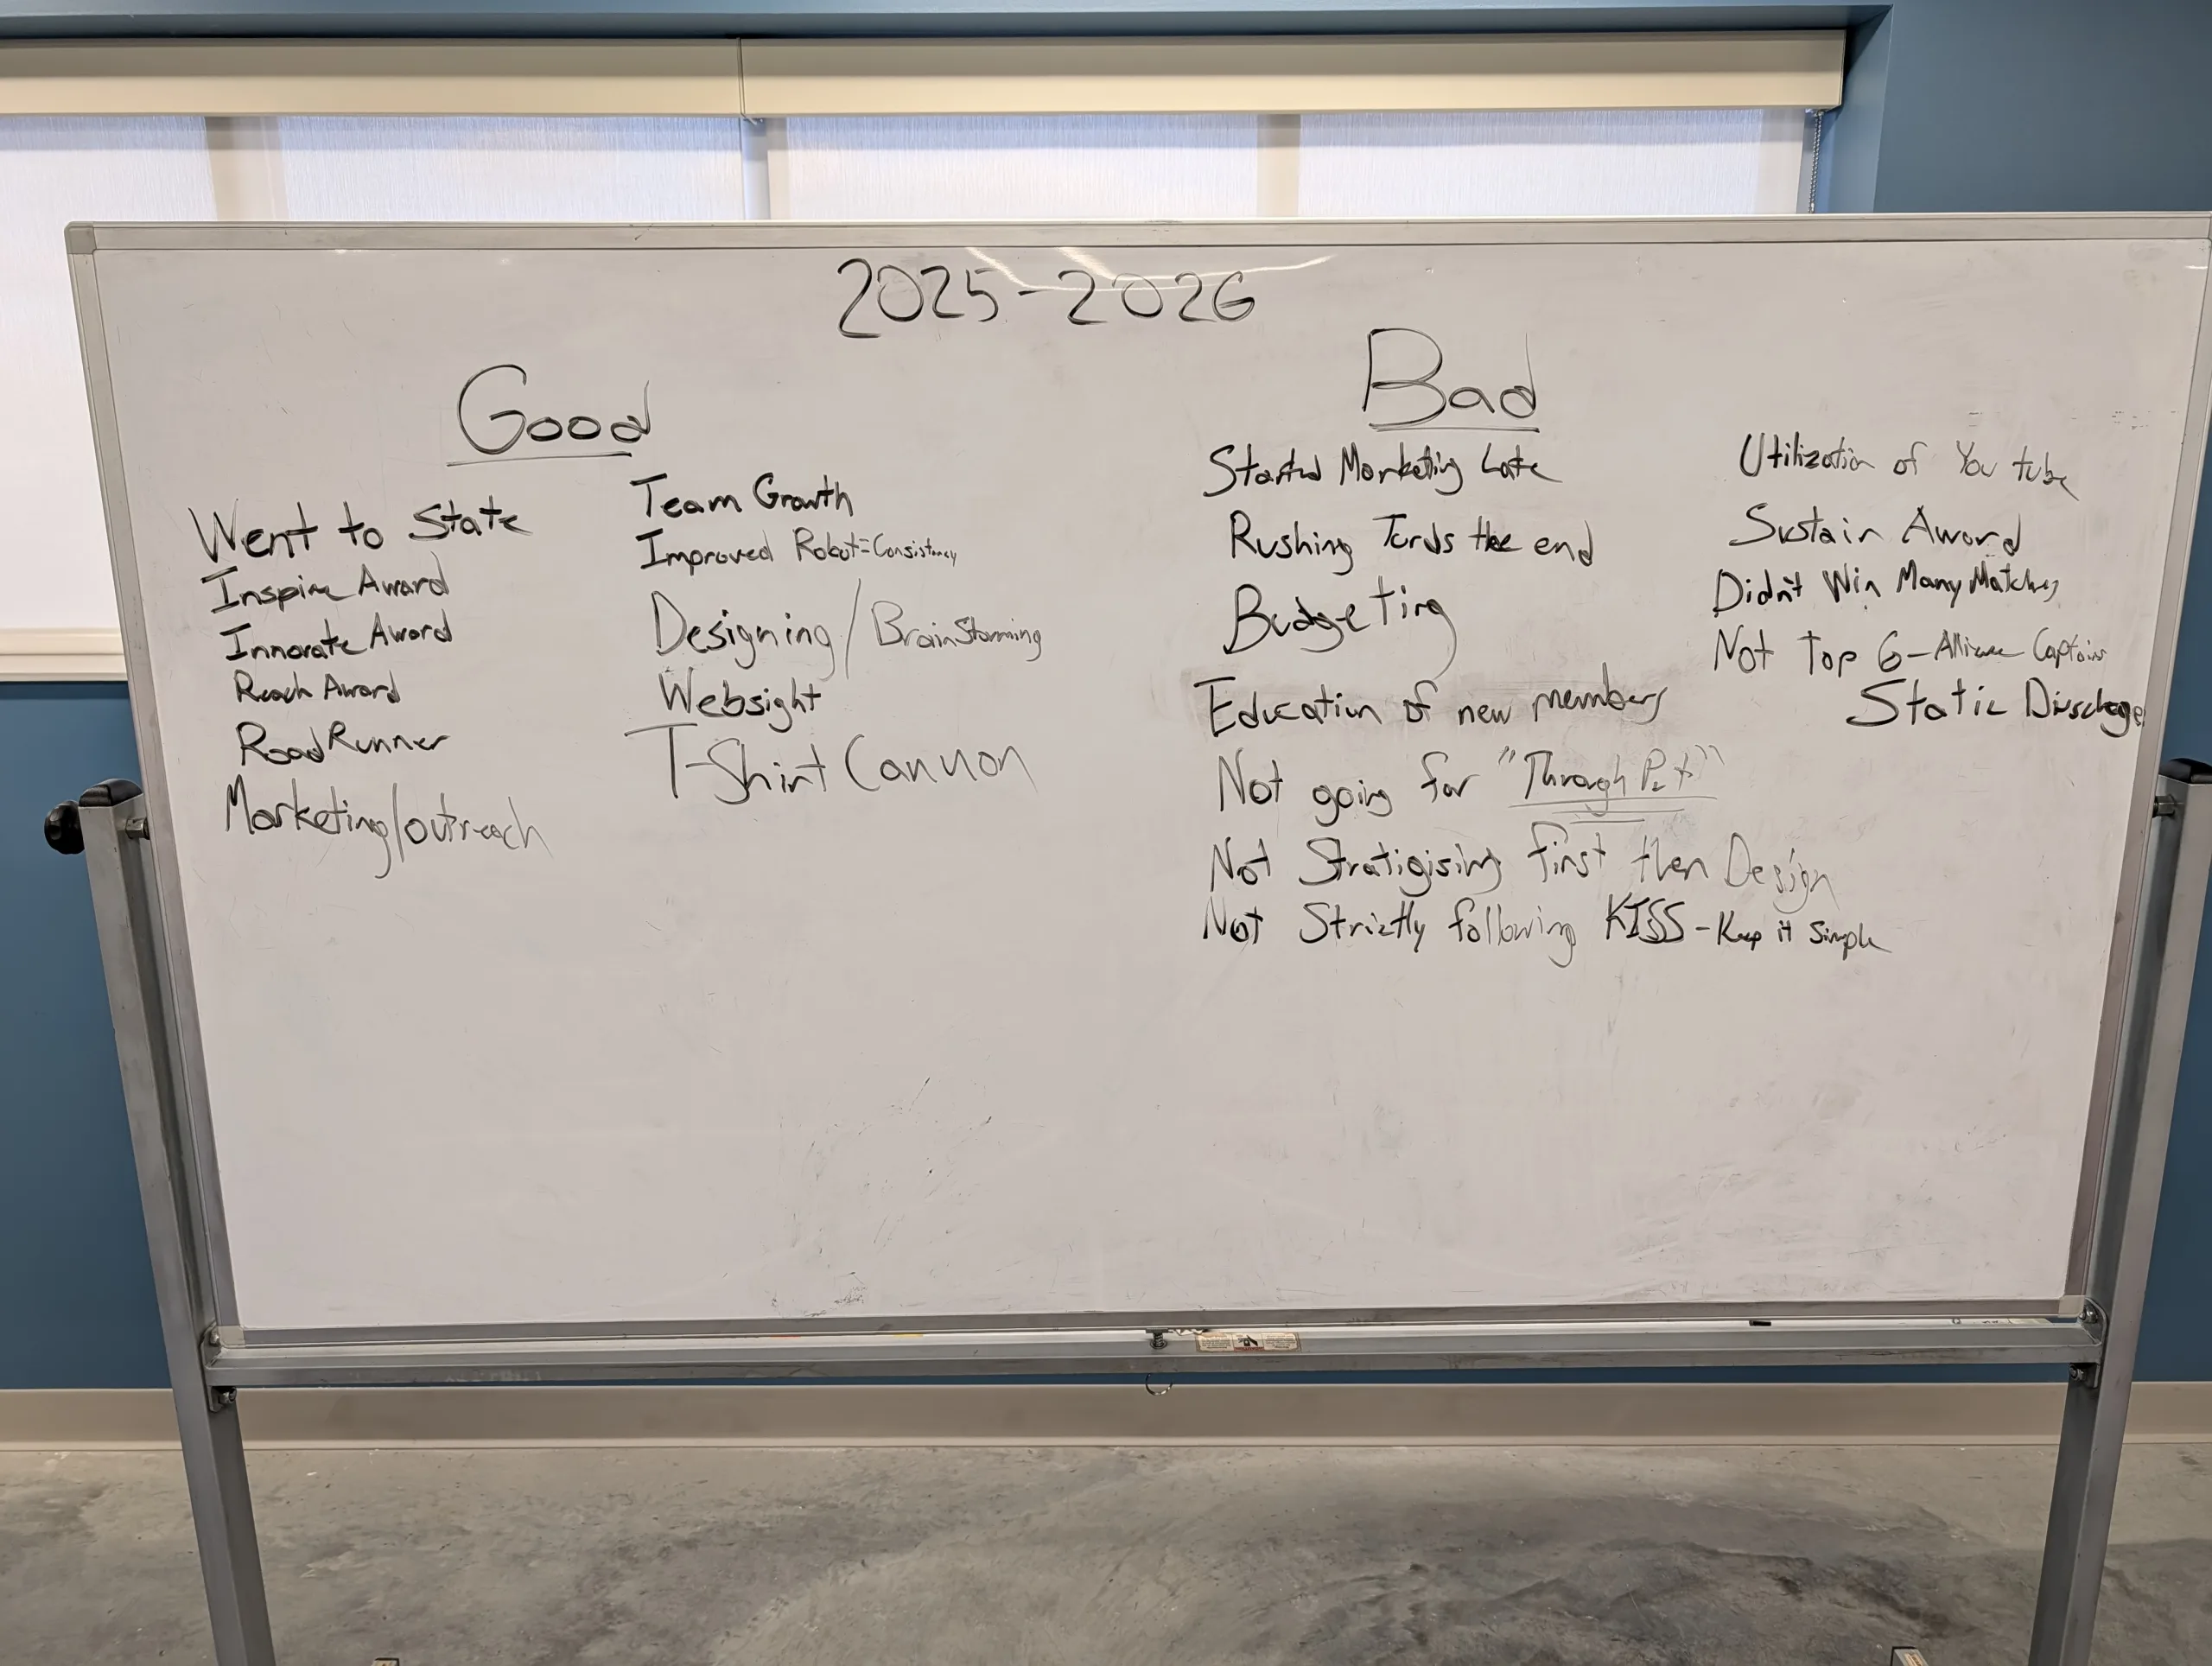 2025-2026
Good
Went to State
Inspire Award
Innovate Award
Reach Award
RoadRunner
Marketing/outreach
Team Growth
Improved Robot=Consistency
Designing/BrainStorming
Websight
T-Shirt Cannon
Bad
Started Marketing Late
Rushing Tords the end
Budgeting
Education of new members
Not going for "Through Put"
Not Stratigising first then Design
Not Strictly following KISS-Keep it Simple
Utilization of You tube
Sustain Award
Didn't Win Many Matches
Not Top 6-Alliance Captains
Static Discharge